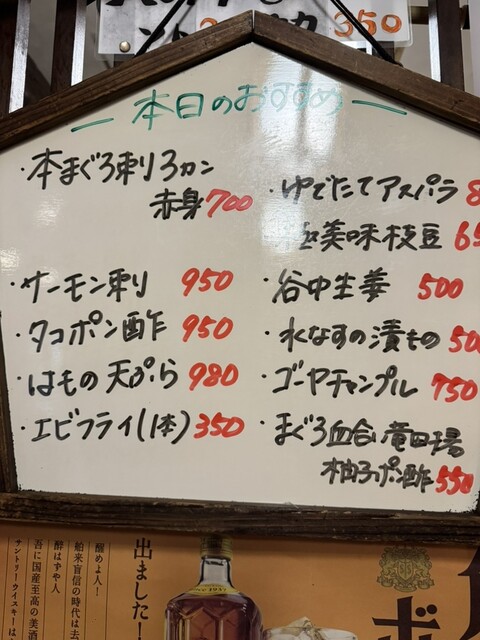 350
— 本日のおすすめ —
・本まぐろ刺り3カン
赤身 700
・サーモン刺り 950
・タコポン酢 950
・はもの天ぷら 980
・エビフライ(1本) 350
・ゆでたてアスパラ
美味枝豆
・谷中生姜 500
・水なすの漬もの
・ゴーヤチャンプル 750
・まぐろ血合い竜田揚
柚子ポン酢 550
出ました!
醒めよ人!
舶来盲信の時代は去
酔はずや人
吾に国産至高の美酒
サントリーウイスキーは